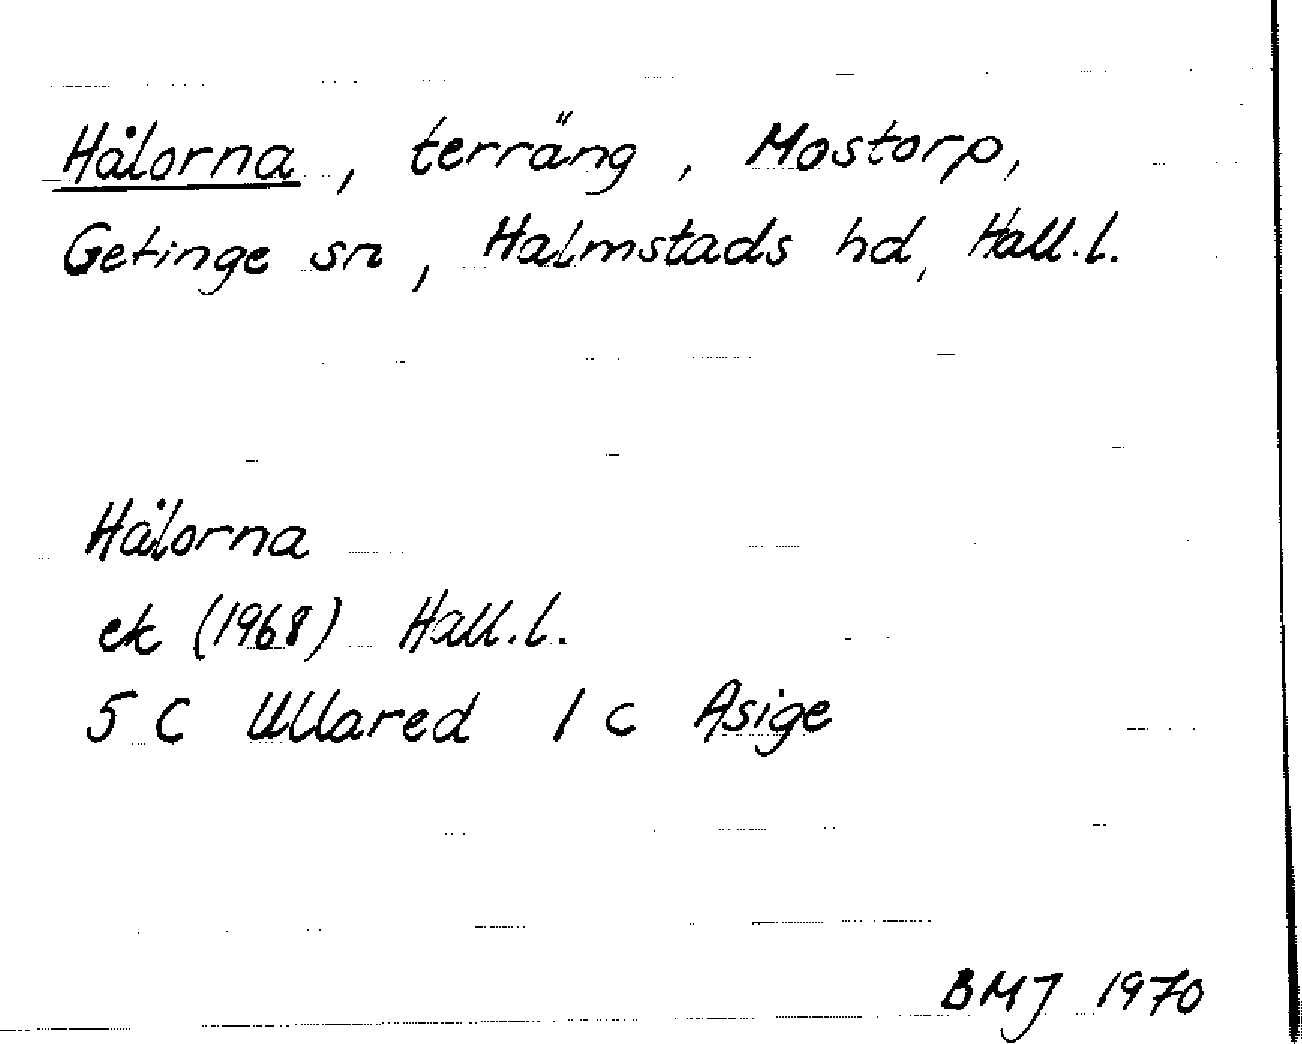 Hålorna, terräng, Mostorp,
Getinge sn, Halmstads hd, Hall.l.
Hålorna
ek (1968) Hall.l.
5 C Ullared 1 c Asige
BMJ 1970